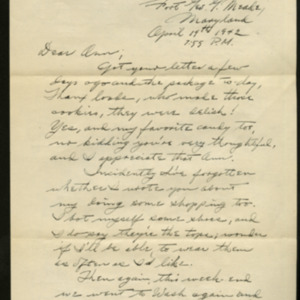 Fort Geo. G. Meade,
Maryland
April 19th 1942
7:55 P.M.
Dear Ann;
Got your letter a few
days ago and the package to-day,
Thanx loads, who made those
cookies, they were delish!
Yes, and my favorite candy too,
no kidding you're very thoughtful,
and I appreciate that Ann.
Incidently I've forgotten
whether I wrote you about
my doing some shopping too.
I bot myself some shoes, and
I do say they're the tops, wonder
if I'll be able to wear them
as often as I'd like.
Then again, this week end
we went to Wash again and